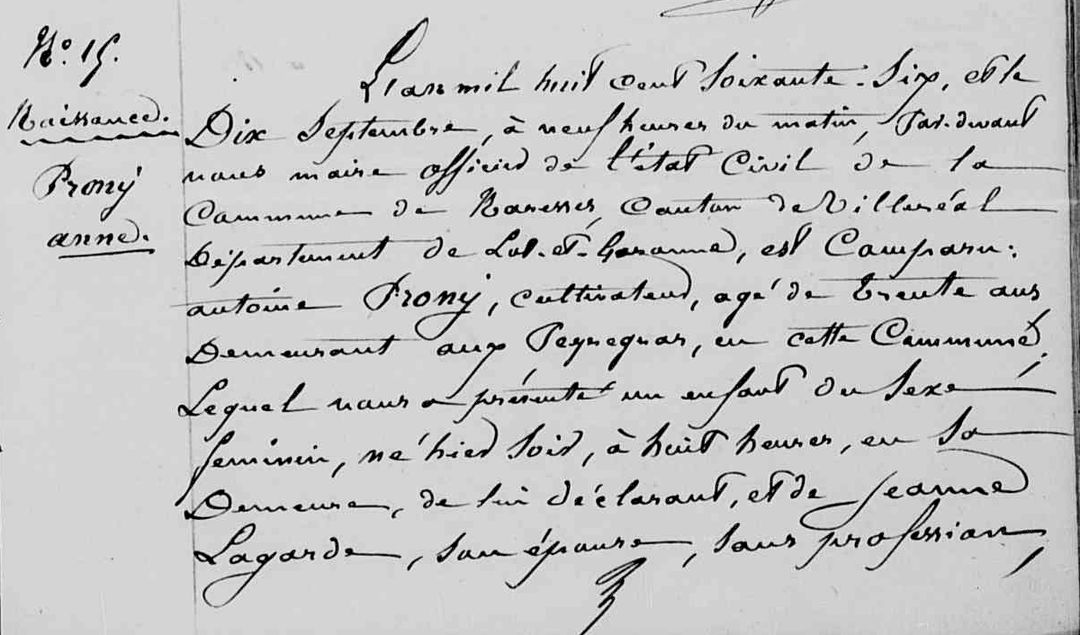 N°. 15.
Naissance.
Prony
anne.
L'an mil huit cent soixante-six, et le
Dix Septembre, à neuf heures du matin, Par-devant
nous maire officier de l'état Civil de la
Commune de Naresses, Canton de Villeréal
Département de Lot-et-Garonne, est Comparu:
antoine Prony, cultivateur, agé de trente ans
Demeurant aux Peyregnas, en cette Commune,
Lequel nous a présenté un enfant du Sexe
feminin, né hier soir, à huit heures, en sa
Demeure, de lui déclarant, et de Jeanne
Lagarde, son épouse, sans profession,